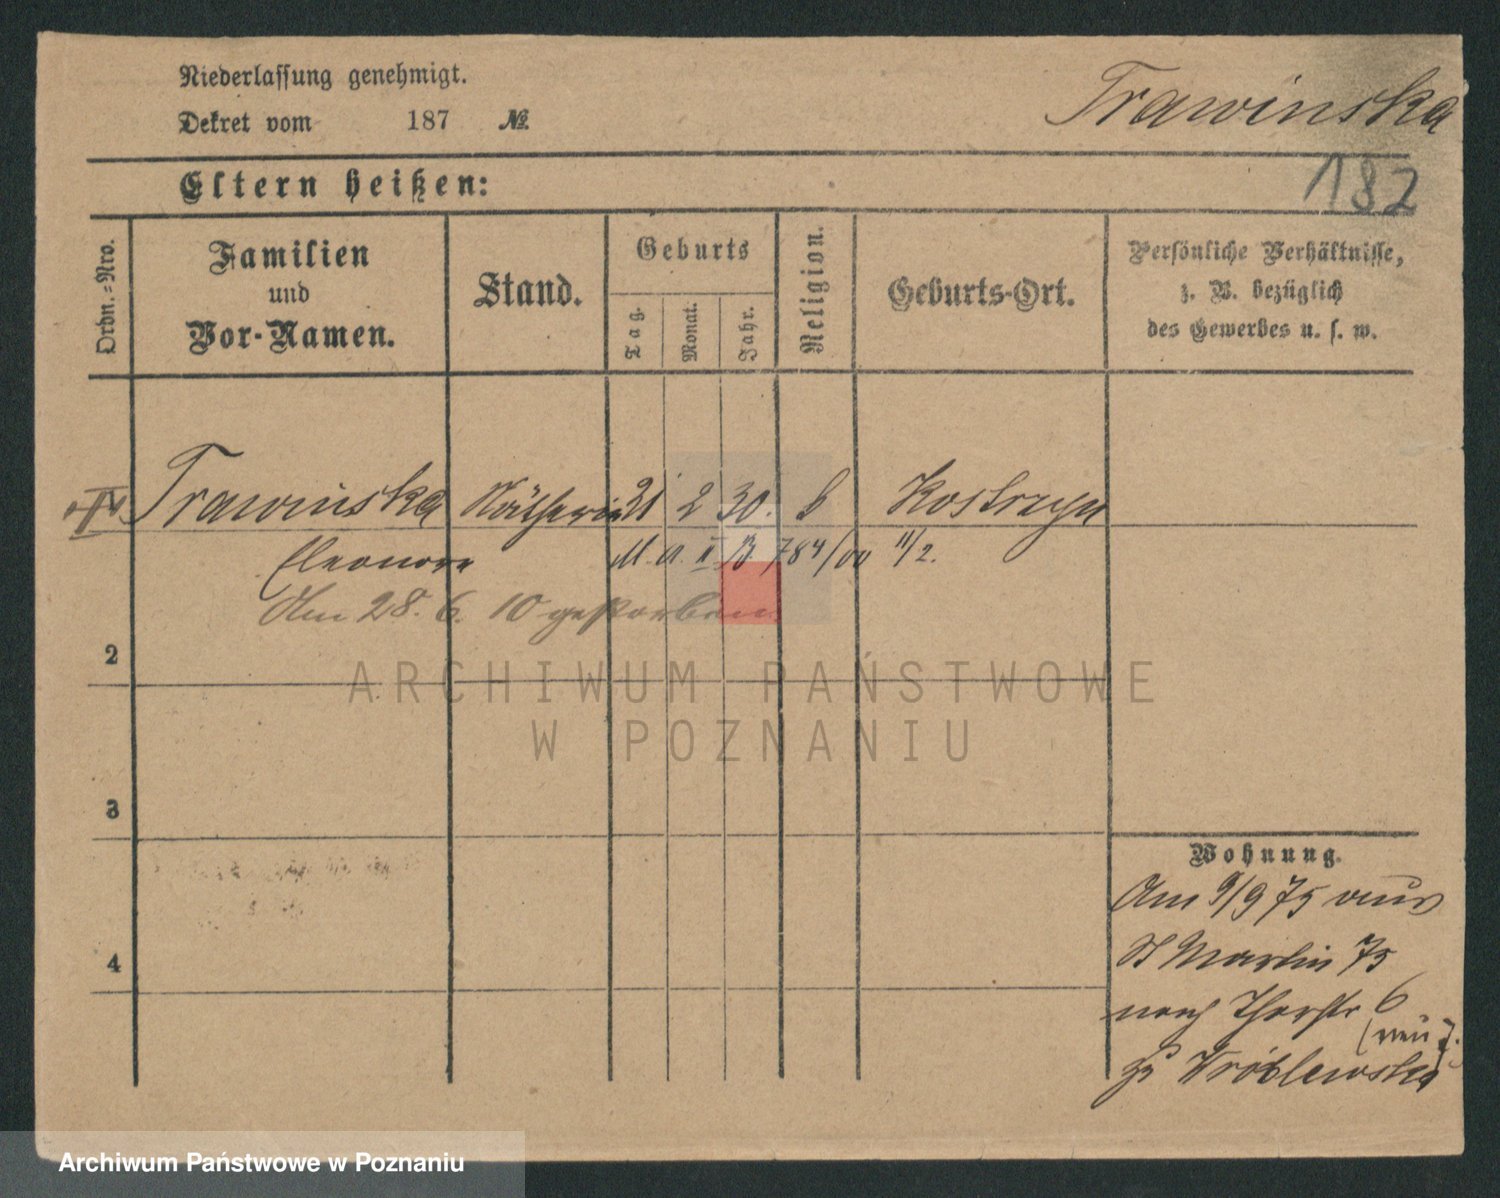 Niederlassung genehmigt.
Dekret vom 187 №
Trawinska
182
Eltern heißen:
Ordn.-Nro.
Familien
und
Vor-Namen.
Stand.
Geburts
Tag.
Monat.
Jahr.
Religion.
Geburts-Ort.
Persönliche Verhältnisse,
z. B. bezüglich
des Gewerbes u. s. w.
Trawinska Nätherin 21 2 30. Kostrzyn
Eleonore 784/00 11/2.
Am 28. 6. 10 gestorben
2
3
4
Wohnung.
Am 9/9 75 aus
St Martin 75
nach Thorstr 6
(neu 7.)
zu Wróblewska
ARCHIWUM PAŃSTWOWE
W POZNANIU
Archiwum Państwowe w Poznaniu